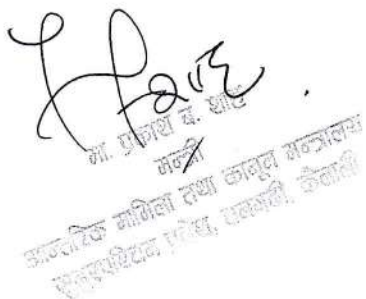 मा. प्रकाश ब. शाह
मन्त्री
आन्तरिक मामिला तथा कानून मन्त्रालय
सुदूरपश्चिम प्रदेश, धनगढी, कैलाली